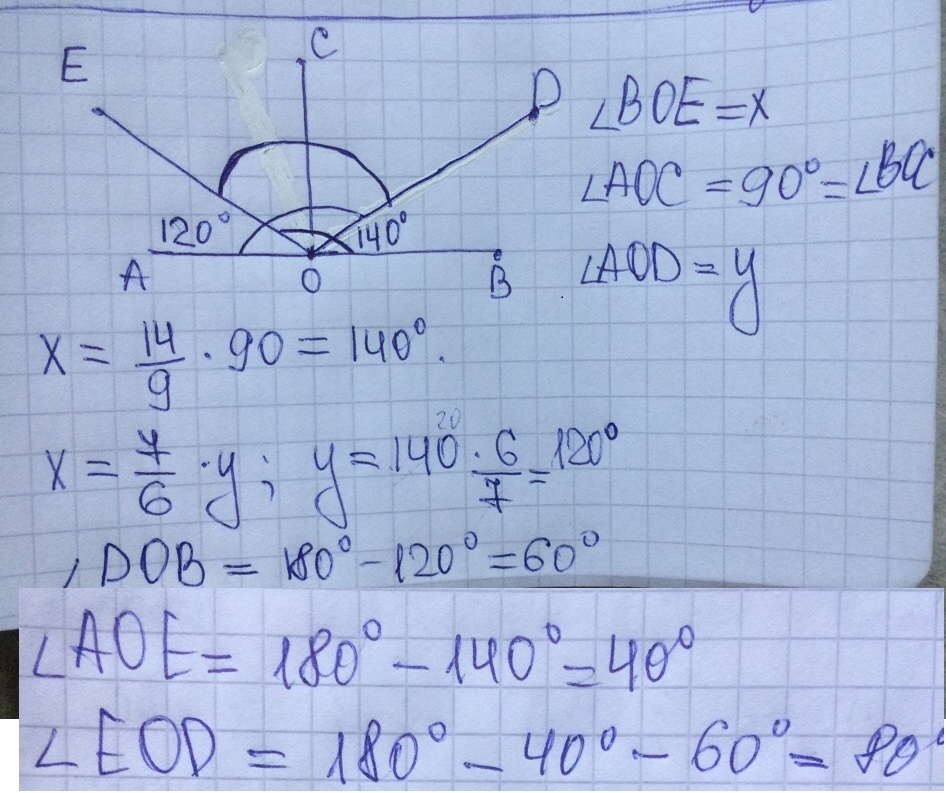 E
C
D
120°
140°
A
O
B
∠BOE = x
∠AOC = 90° = ∠BOC
∠AOD = y
x = 14/9 · 90 = 140°.
x = 7/6 · y; y = 140 · 6/7 = 120°
20
∠DOB = 180° - 120° = 60°
∠AOE = 180° - 140° = 40°
∠EOD = 180° - 40° - 60° = 80°